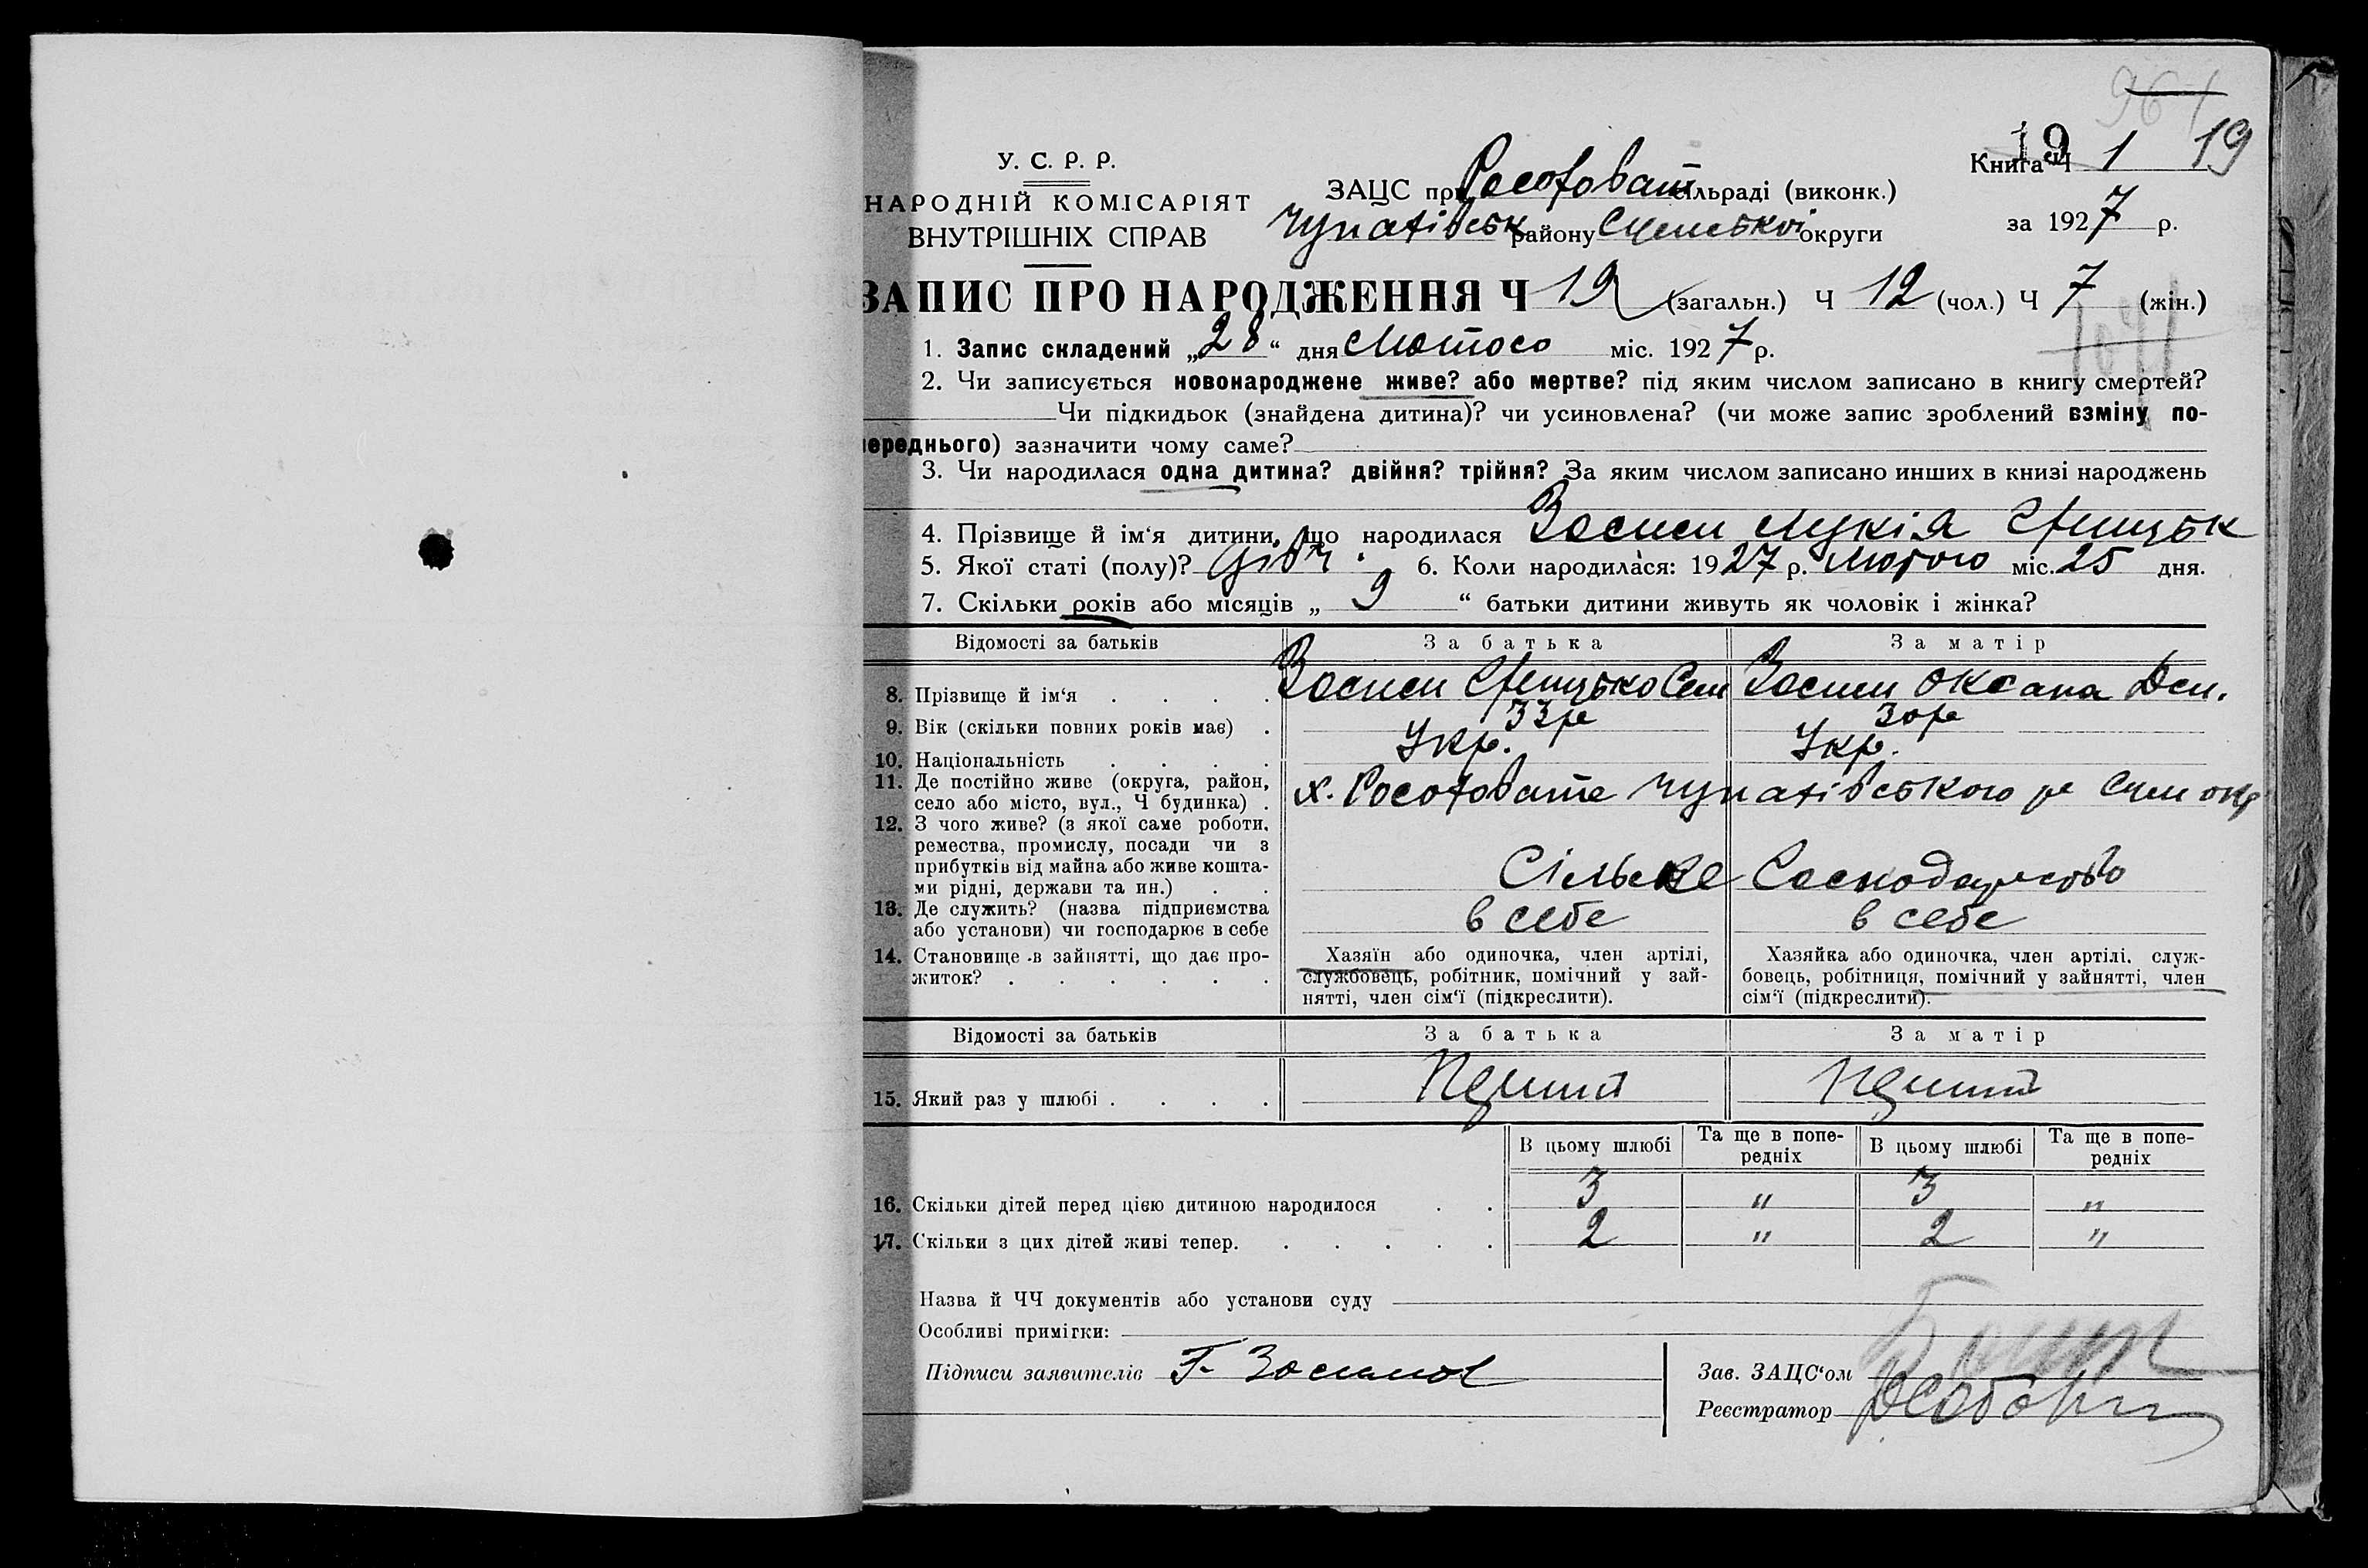 19
Книга Ч 1 19
У. С. Р. Р.
НАРОДНІЙ КОМІСАРІЯТ
ВНУТРІШНІХ СПРАВ
ЗАЦС при Рогоzоват сільраді (виконк.)
Чупахівськ району Сумської округи
за 1927 р.
ЗАПИС ПРО НАРОДЖЕННЯ Ч 19 (загальн.) Ч 12 (чол.) Ч 7 (жін.)
1. Запис складений „28“ дня Лютого міс. 1927 р.
2. Чи записується новонароджене живе? або мертве? під яким числом записано в книгу смертей?
Чи підкидьок (знайдена дитина)? чи усиновлена? (чи може запис зроблений взміну по-
переднього) зазначити чому саме?
3. Чи народилася одна дитина? двійня? трійня? За яким числом записано инших в книзі народжень
4. Прізвище й ім‘я дитини, що народилася Зосим Лукія Грицьк
5. Якої статі (полу)? Дівч. 6. Коли народилася: 1927 р. Лютого міс. 25 дня.
7. Скільки років або місяців „ 9 “ батьки дитини живуть як чоловік і жінка?
Відомості за батьків За батька За матір
8. Прізвище й ім‘я Зосим Грицько Сем Зосим Оксана Дем.
9. Вік (скільки повних років має) 33 р 30 р
10. Національність Укр. Укр.
11. Де постійно живе (округа, район,
село або місто, вул., Ч будинка) х. Чупахівського р Сум окр
12. З чого живе? (з якої саме роботи,
ремества, промислу, посади чи з
прибутків від майна або живе кошта-
ми рідні, держави та ин.) Сільске Господарство
13. Де служить? (назва підприємства
або установи) чи господарює в себе в себе в себе
14. Становище в зайнятті, що дає про-
житок?
Хазяїн або одиночка, член артілі,
службовець, робітник, помічний у зай-
нятті, член сім‘ї (підкреслити).
Хазяйка або одиночка, член артілі. служ-
бовець, робітниця, помічний у зайнятті, член
сім‘ї (підкреслити).
Відомості за батьків За батька За матір
15. Який раз у шлюбі Перший Перший
В цьому шлюбі Та ще в попе-
редніх В цьому шлюбі Та ще в попе-
редніх
16. Скільки дітей перед цією дитиною народилося 3 " 3 "
17. Скільки з цих дітей живі тепер. 2 " 2 "
Назва й ЧЧ документів або установи суду
Особливі примітки:
Підписи заявителів Г. Зосимов
Зав. ЗАЦС‘ом
Реєстратор